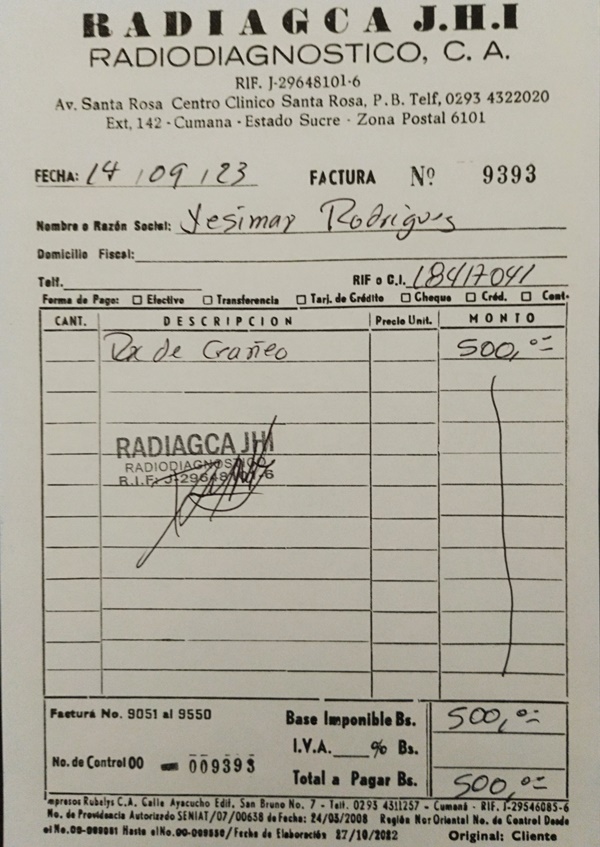 RADIAGCA J.H.I
RADIODIAGNOSTICO, C. A.
RIF. J-29648101-6
Av. Santa Rosa Centro Clinico Santa Rosa, P.B. Telf, 0293 4322020
Ext, 142 - Cumana - Estado Sucre - Zona Postal 6101
FECHA: 14 / 09 / 23 FACTURA Nº 9393
Nombre o Razón Social: Yesimar Rodrigues
Domicilio Fiscal:
Telf. RIF o C.I. 18417041
Forma de Pago: Efectivo Transferencia Tarj. de Crédito Cheque Créd. Cont.
CANT. DESCRIPCION Precio Unit. MONTO
Rx de Craneo 500,00
RADIAGCA JHI
RADIODIAGNOSTICO
R.I.F: J-29648101-6
Factura No. 9051 al 9550 Base Imponible Bs. 500,00
I.V.A. % Bs.
No. de Control 00 - 009393
Total a Pagar Bs. 500,00
Impresos Rubelys C.A. Calle Ayacucho Edif. San Bruno No. 7 - Telf. 0293 4311257 - Cumaná - RIF. J-29546085-6
No. de Providencia Autorizado SENIAT/07/00638 de Fecha: 24/03/2008 Región Nor Oriental No. de Control Desde
el No. 00-009051 Hasta el No. 00-009550/Fecha de Elaboración 27/10/2022 Original: Cliente